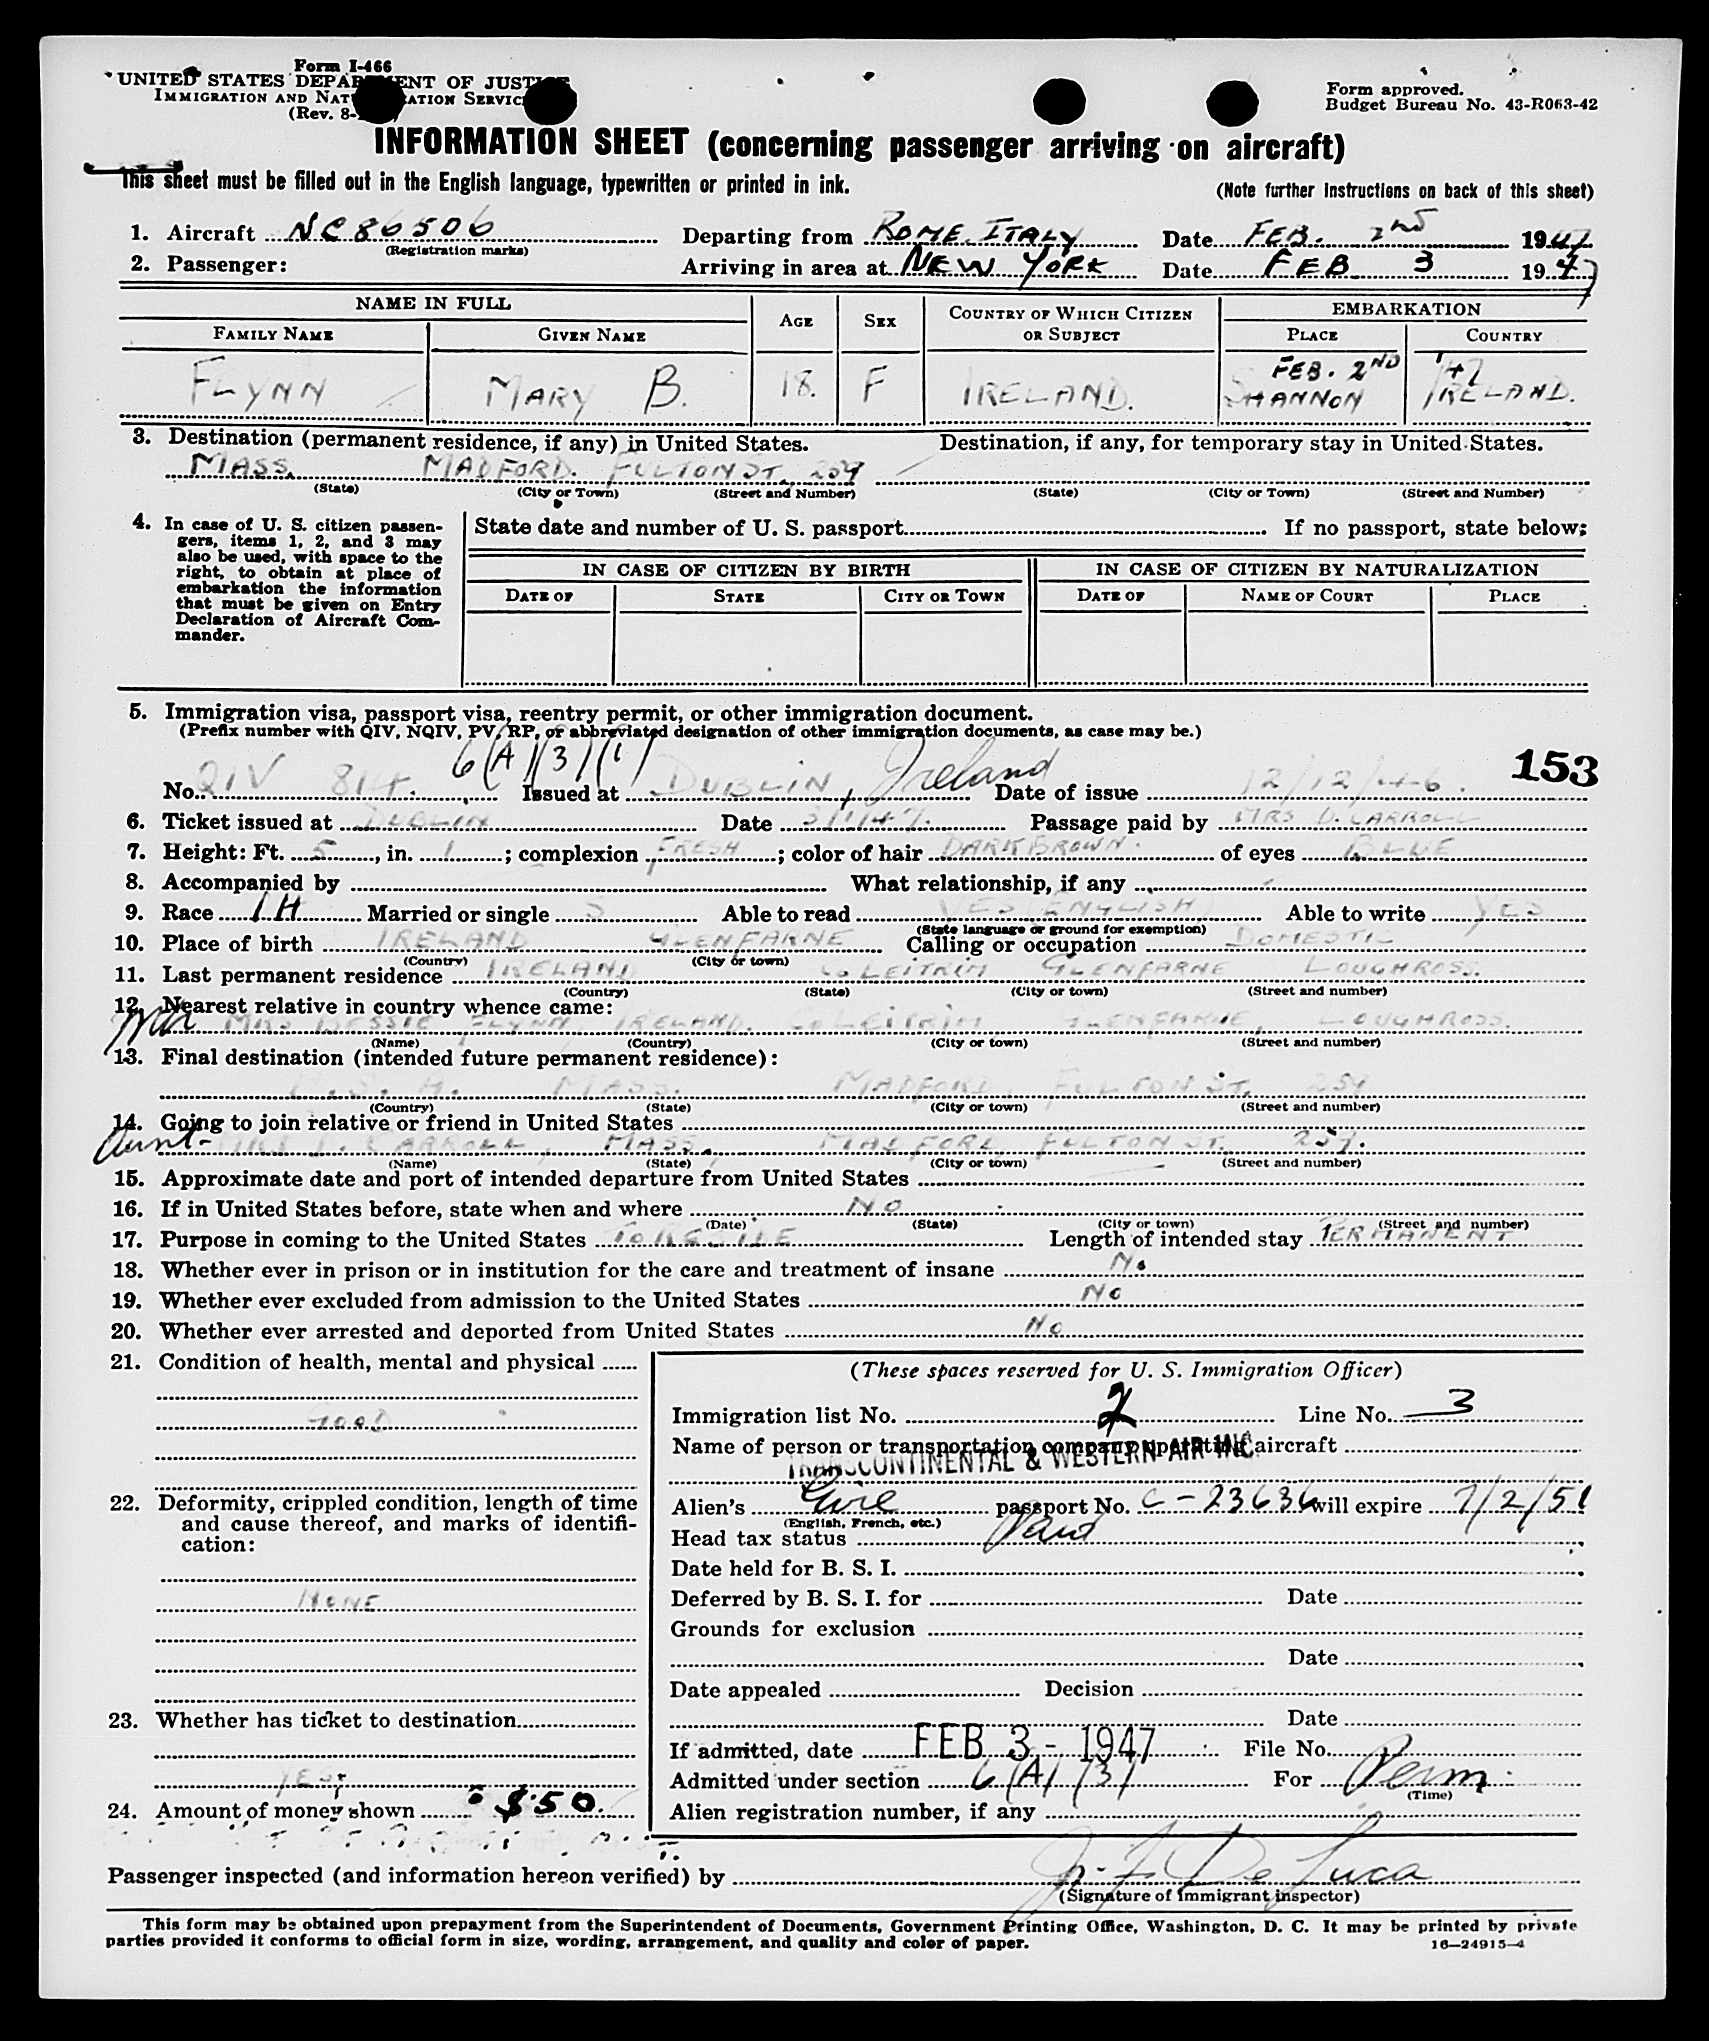 Form I-466
UNITED STATES DEPARTMENT OF JUSTICE
IMMIGRATION AND NATURALIZATION SERVICE
(Rev. 8-
Form approved.
Budget Bureau No. 43-R063-42
INFORMATION SHEET (concerning passenger arriving on aircraft)
This sheet must be filled out in the English language, typewritten or printed in ink.
(Note further instructions on back of this sheet)
1. Aircraft NC86506 Departing from ROME ITALY Date FEB. 2ND 1947
(Registration marks)
2. Passenger: Arriving in area at NEW YORK Date FEB 3 1947
NAME IN FULL AGE SEX COUNTRY OF WHICH CITIZEN OR SUBJECT EMBARKATION
FAMILY NAME GIVEN NAME PLACE COUNTRY
FEB. 2ND '47
FLYNN MARY B. 18. F IRELAND. SHANNON IRELAND.
3. Destination (permanent residence, if any) in United States. Destination, if any, for temporary stay in United States.
MASS. MADFORD. FULTON ST. 259
(State) (City or Town) (Street and Number) (State) (City or Town) (Street and Number)
4. In case of U. S. citizen passen-
gers, items 1, 2, and 3 may
also be used, with space to the
right, to obtain at place of
embarkation the information
that must be given on Entry
Declaration of Aircraft Com-
mander.
State date and number of U. S. passport If no passport, state below:
IN CASE OF CITIZEN BY BIRTH IN CASE OF CITIZEN BY NATURALIZATION
DATE OF STATE CITY OR TOWN DATE OF NAME OF COURT PLACE
5. Immigration visa, passport visa, reentry permit, or other immigration document.
(Prefix number with QIV, NQIV, PV, RP, or abbreviated designation of other immigration documents, as case may be.)
6(A)(3)(1)
153
No. QIV 814. Issued at DUBLIN, Ireland Date of issue 12/12/46.
6. Ticket issued at DUBLIN Date 3/1/47. Passage paid by MRS D. CARROLL
7. Height: Ft. 5, in. 1; complexion FRESH; color of hair DARK BROWN. of eyes BLUE
8. Accompanied by What relationship, if any
9. Race IH Married or single S Able to read YES (ENGLISH) Able to write YES
(State language or ground for exemption)
10. Place of birth IRELAND GLENFARNE Calling or occupation DOMESTIC
(Country) (City or town)
11. Last permanent residence IRELAND Co LEITRIM GLENFARNE LOUGHROSS.
(Country) (State) (City or town) (Street and number)
12. Nearest relative in country whence came:
MRS BESSIE FLYNN, IRELAND. Co LEITRIM GLENFARNE, LOUGHROSS.
(Name) (Country) (City or town) (Street and number)
13. Final destination (intended future permanent residence):
MASS. MADFORD, FULTON ST. 259
(Country) (State) (City or town) (Street and number)
14. Going to join relative or friend in United States
Aunt- MRS D. CARROLL, MASS., MADFORD, FULTON ST. 259.
(Name) (State) (City or town) (Street and number)
15. Approximate date and port of intended departure from United States
16. If in United States before, state when and where NO
(Date) (State) (City or town) (Street and number)
17. Purpose in coming to the United States TO RESIDE Length of intended stay PERMANENT
18. Whether ever in prison or in institution for the care and treatment of insane No
19. Whether ever excluded from admission to the United States No
20. Whether ever arrested and deported from United States No
21. Condition of health, mental and physical
GOOD
22. Deformity, crippled condition, length of time
and cause thereof, and marks of identifi-
cation:
NONE
23. Whether has ticket to destination
YES
24. Amount of money shown $50.
(These spaces reserved for U. S. Immigration Officer)
Immigration list No. 2 Line No. 3
Name of person or transportation company operating aircraft
TRANSCONTINENTAL & WESTERN AIR INC.
Alien's Eire passport No. C-23636 will expire 7/2/51
(English, French, etc.)
Head tax status Paid
Date held for B. S. I.
Deferred by B. S. I. for Date
Grounds for exclusion
Date
Date appealed Decision
Date
If admitted, date FEB 3 - 1947 File No.
Admitted under section 6(A)(3) For Perm.
(Time)
Alien registration number, if any
Passenger inspected (and information hereon verified) by J. F. De Luca
(Signature of immigrant inspector)
This form may be obtained upon prepayment from the Superintendent of Documents, Government Printing Office, Washington, D. C. It may be printed by private
parties provided it conforms to official form in size, wording, arrangement, and quality and color of paper.
16—24915-4